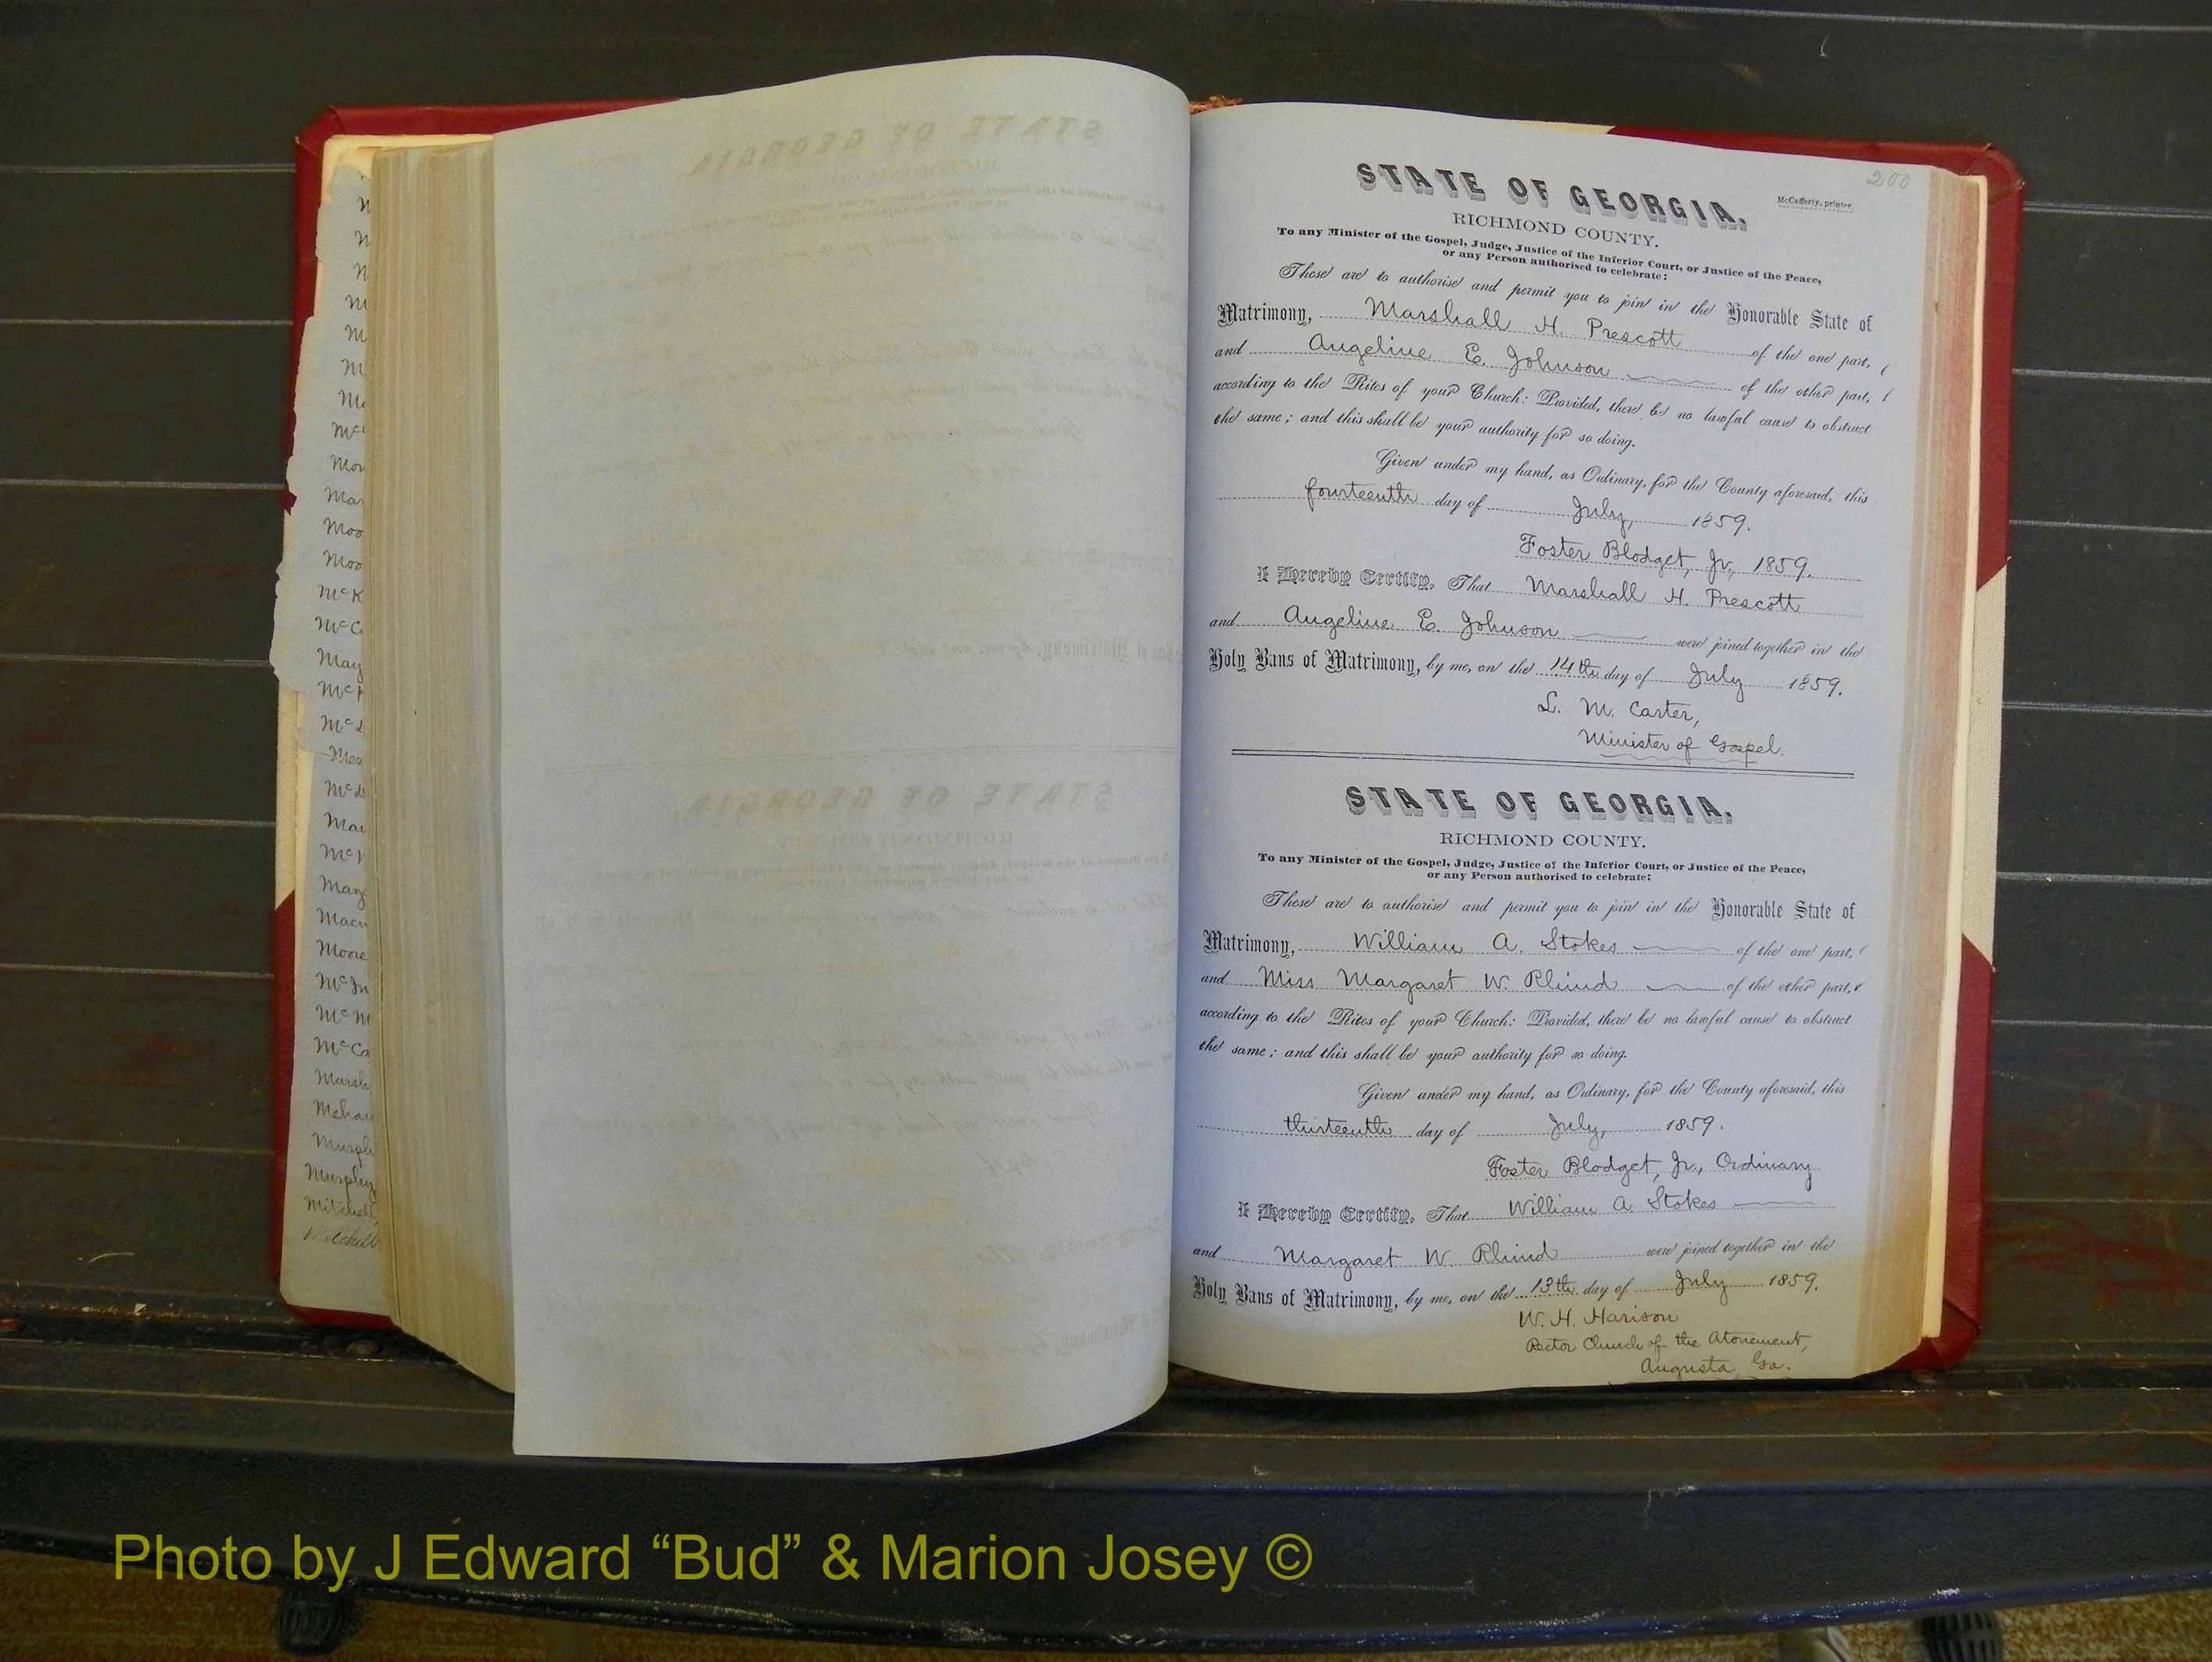 200
STATE OF GEORGIA.
McCafferty, printer.
RICHMOND COUNTY.
To any Minister of the Gospel, Judge, Justice of the Inferior Court, or Justice of the Peace,
or any Person authorised to celebrate:
These are to authorise and permit you to join in the Honorable State of
Matrimony, Marshall H. Prescott of the one part,
and Angeline E. Johnson of the other part,
according to the Rites of your Church: Provided, there be no lawful cause to obstruct
the same; and this shall be your authority for so doing.
Given under my hand, as Ordinary, for the County aforesaid, this
fourteenth day of July, 1859.
Foster Blodget, Jr., 1859.
I Hereby Certify, That Marshall H. Prescott
and Angeline E. Johnson were joined together in the
Holy Bans of Matrimony, by me, on the 14th day of July 1859.
L. M. Carter,
Minister of Gospel.
STATE OF GEORGIA.
RICHMOND COUNTY.
To any Minister of the Gospel, Judge, Justice of the Inferior Court, or Justice of the Peace,
or any Person authorised to celebrate:
These are to authorise and permit you to join in the Honorable State of
Matrimony, William A. Stokes of the one part,
and Miss Margaret W. Rhind of the other part,
according to the Rites of your Church: Provided, there be no lawful cause to obstruct
the same; and this shall be your authority for so doing.
Given under my hand, as Ordinary, for the County aforesaid, this
thirteenth day of July, 1859.
Foster Blodget, Jr., Ordinary
I Hereby Certify, That William A. Stokes
and Margaret W. Rhind were joined together in the
Holy Bans of Matrimony, by me, on the 13th day of July 1859.
W. H. Harison
Rector Church of the Atonement,
Augusta Ga.
Moore
Murphy
Mitchell
Photo by J Edward “Bud” & Marion Josey ©